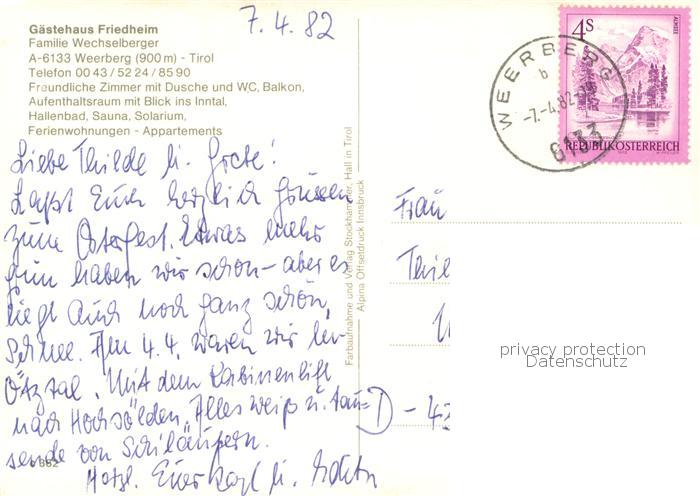 7.4.82
Gästehaus Friedheim
Familie Wechselberger
A-6133 Weerberg (900 m) - Tirol
Telefon 00 43 / 52 24 / 85 90
Freundliche Zimmer mit Dusche und WC, Balkon,
Aufenthaltsraum mit Blick ins Inntal,
Hallenbad, Sauna, Solarium,
Ferienwohnungen - Appartements
4S
ALMSEE
REPUBLIK ÖSTERREICH
WEERBERG
b
-7.-4.82-
6133
Liebe Thilde u. Grete!
Laßt Euch herzlich Grüssen
zum Osterfest. Etwas mehr
grün haben wir schon - aber es
liegt auch noch ganz schön,
Schnee. Am 4.4. waren wir im
Ötztal. Mit dem Kabinenlift
nach Hochsölden. Alles weiß u. tau=
sende von Schiläufern.
Herzl. Euer Karl u.
Farbaufnahme und Verlag Stockhammer, Hall in Tirol
Alpina Offsetdruck Innsbruck
Frau
Thil
D - 43
privacy protection
Datenschutz